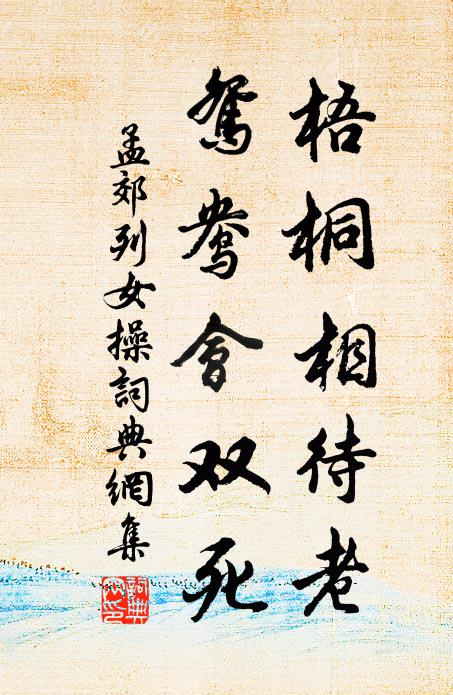 梧桐相待老
鸳鸯會双死
孟郊列女操詞典網集